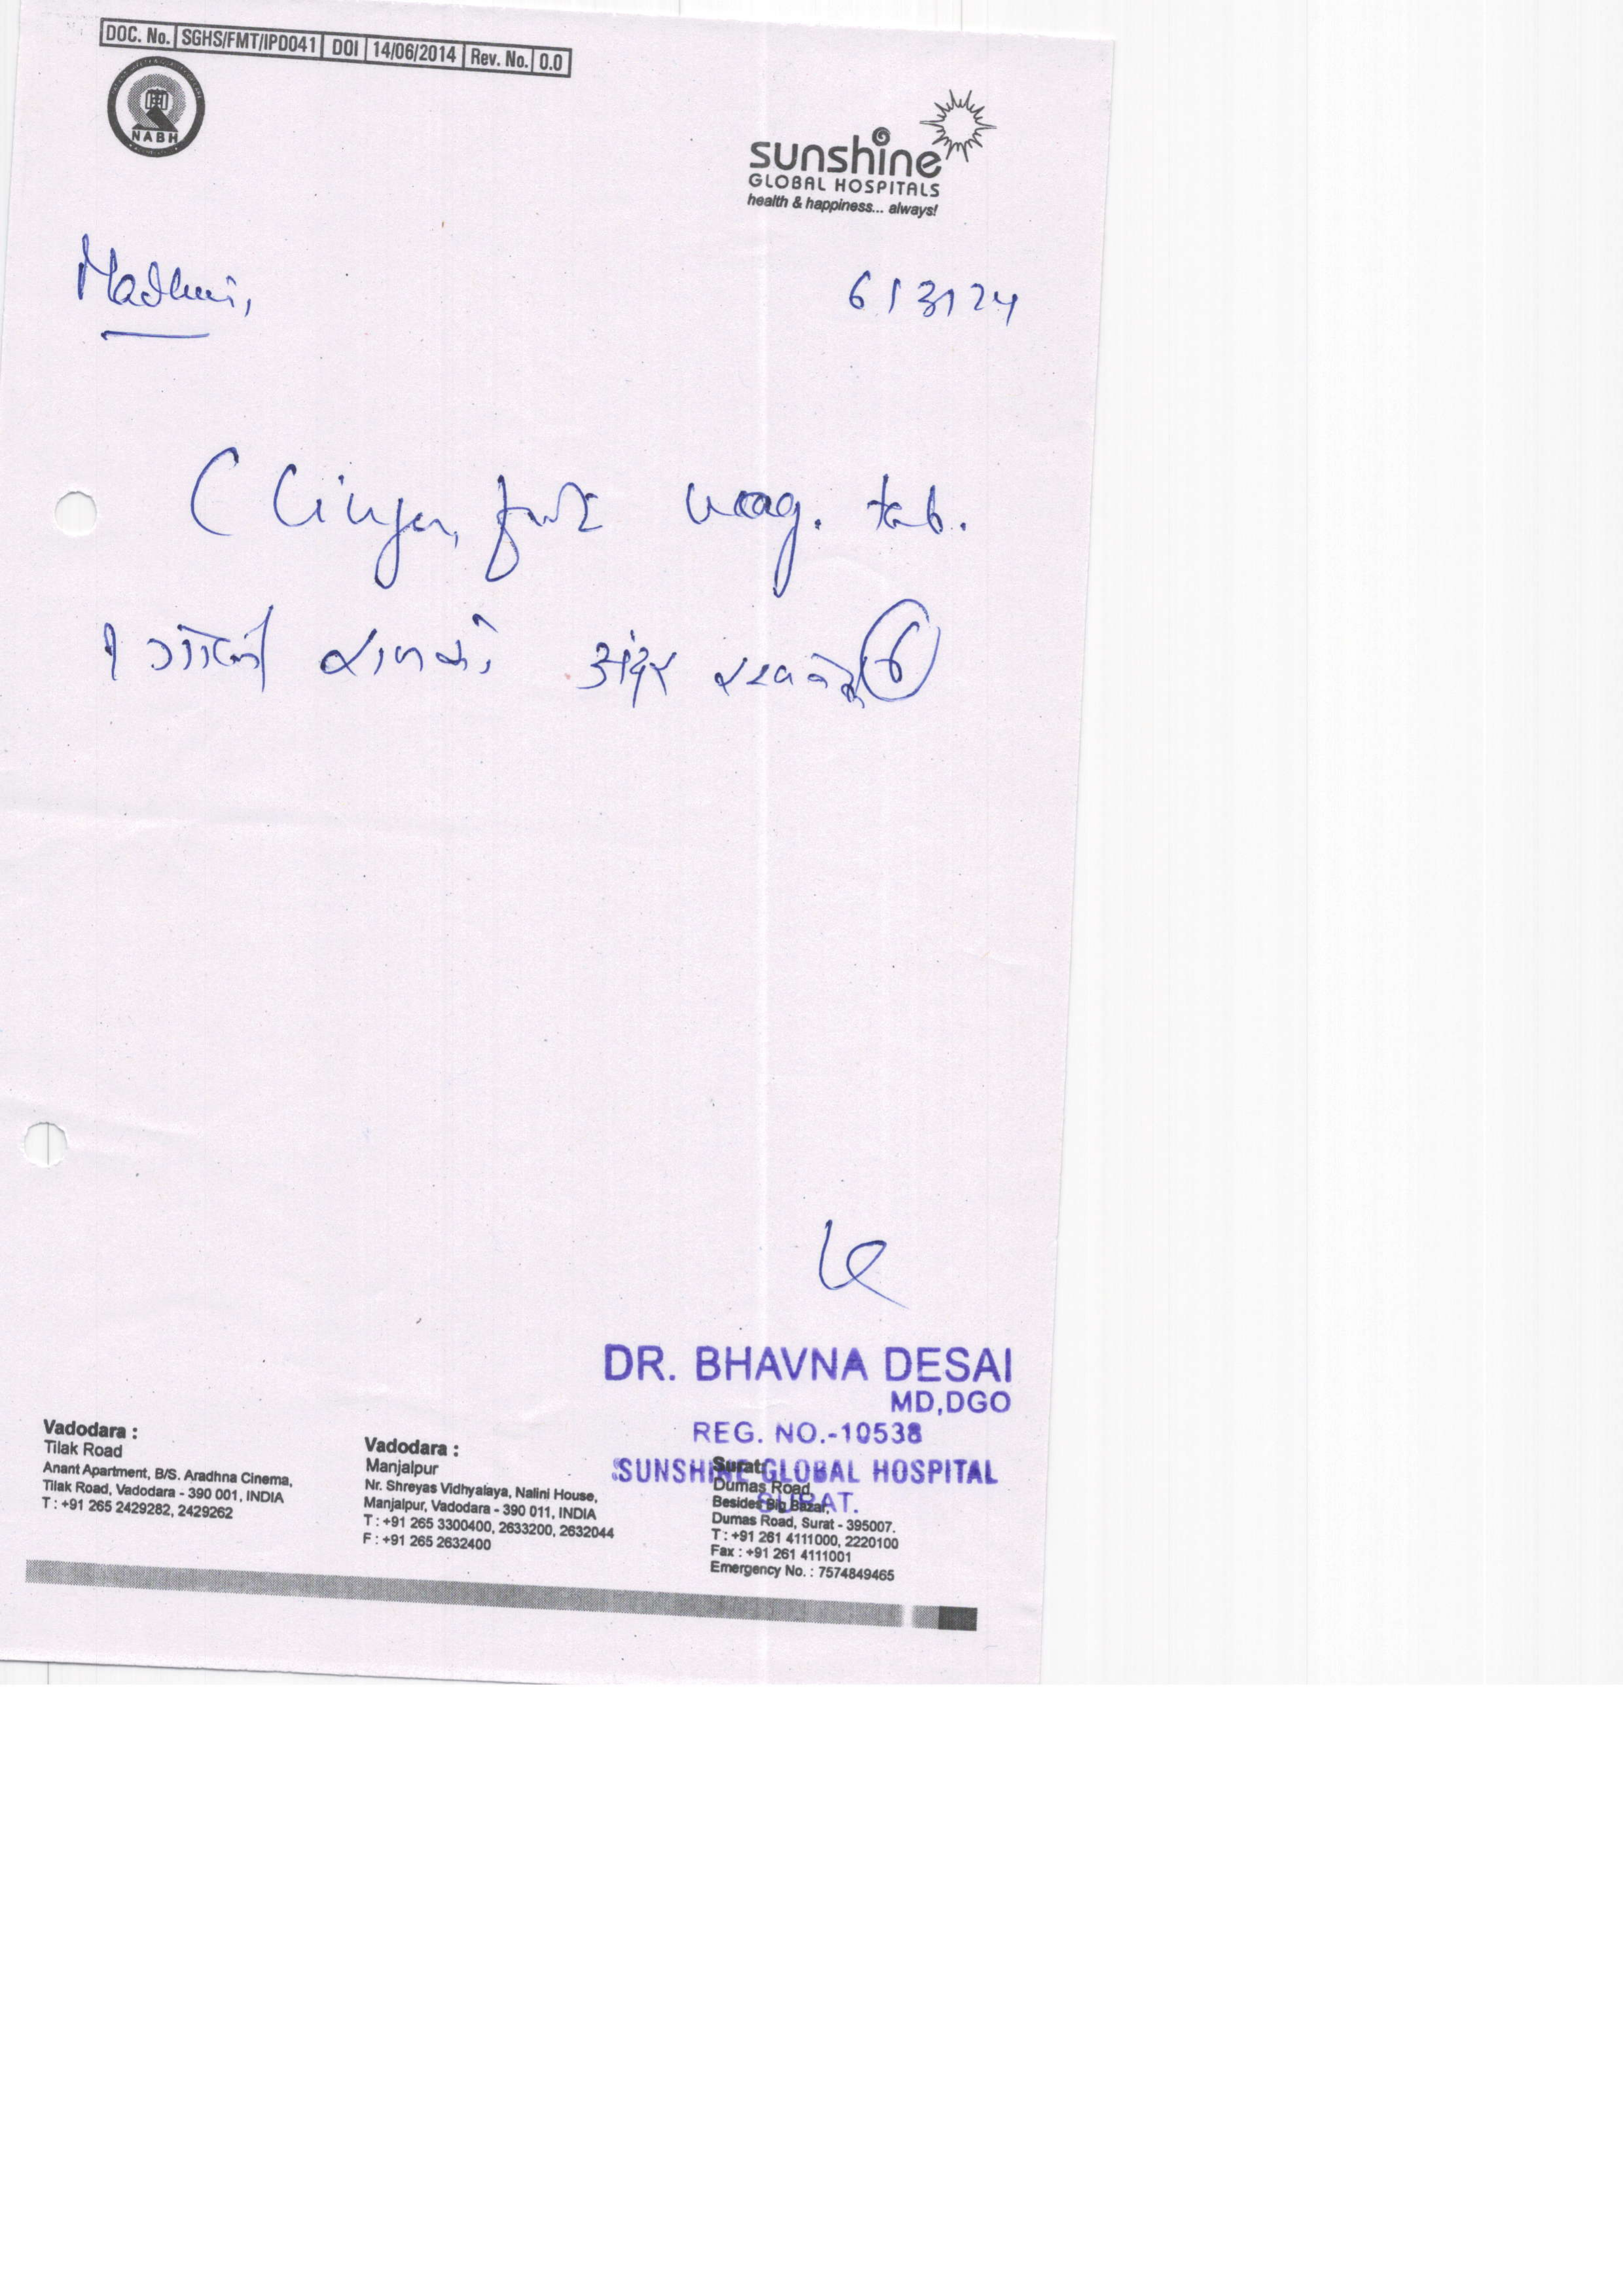 DOC. No. SGHS/FMT/IPD041 DOI 14/06/2014 Rev. No. 0.0
NABH
sunshine
GLOBAL HOSPITALS
health & happiness... always!
6/3/24
tab.
૧ ગોળી રાત્રે અંદર
6
DR. BHAVNA DESAI
MD,DGO
REG. NO.-10538
SUNSHINE GLOBAL HOSPITAL
SURAT.
Vadodara :
Tilak Road
Anant Apartment, B/S. Aradhna Cinema,
Tilak Road, Vadodara - 390 001, INDIA
T : +91 265 2429282, 2429262
Vadodara :
Manjalpur
Nr. Shreyas Vidhyalaya, Nalini House,
Manjalpur, Vadodara - 390 011, INDIA
T : +91 265 3300400, 2633200, 2632044
F : +91 265 2632400
Surat:
Dumas Road,
Besides Big Bazar,
Dumas Road, Surat - 395007.
T : +91 261 4111000, 2220100
Fax : +91 261 4111001
Emergency No. : 7574849465